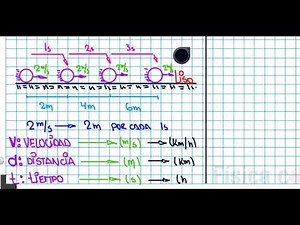 1s 2s 3s
2m/s 2m/s 2m/s 2m/s
LISO
2m 4m 6m
2m/s → 2m POR CADA 1s
V: VELOCIDAD → (m/s) → (Km/h)
d: DISTANCIA → (m) → (Km)
t: TIEMPO → (s) → (h